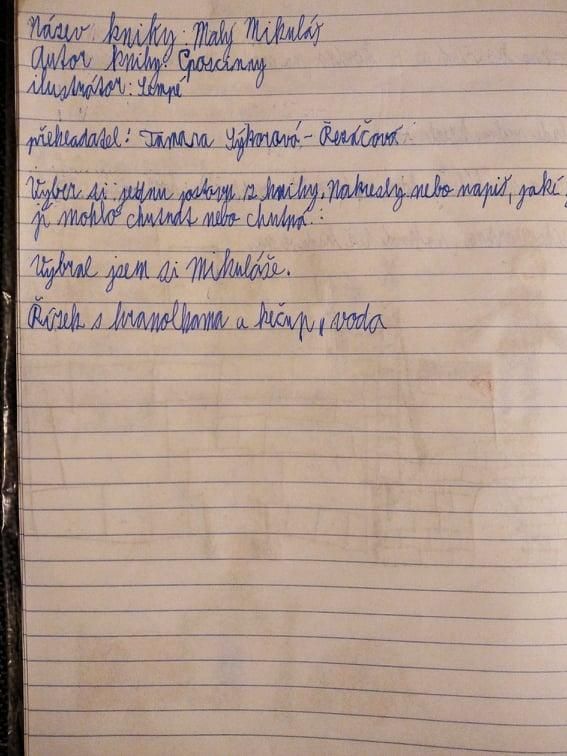 Název kniky: Malý Mikuláš
Autor knihy: Goscinny
ilustrátor: Sempé
překladatel: Tamara Sýkorová - Řezáčová
Vyber si jednu postavu z knihy. Nakresly nebo napiš, jaké
jí mohlo chutnat nebo chutná.:
Vybral jsem si Mikuláše.
Řízek s hranolkama a kečup, voda